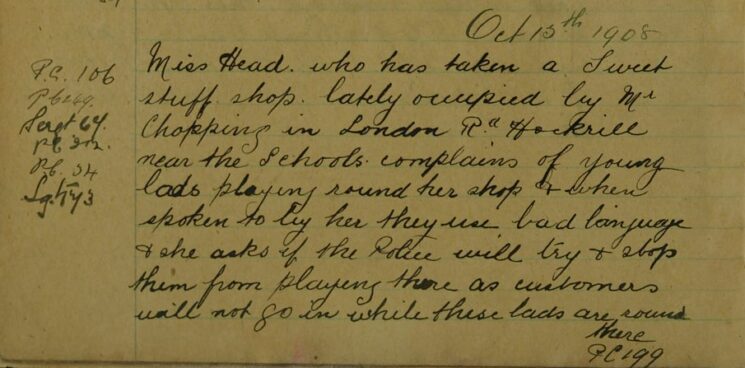 Oct 15th 1908
P.C. 106
Sergt 64.
P.C. 34
Miss Head. who has taken a Sweet
stuff shop. lately occupied by Mr
Chopping in London Rd Hockrill
near the Schools. complains of young
lads playing round her shop & when
spoken to by her they use bad language
& she asks if the Police will try & stop
them from playing there as customers
will not go in while these lads are round
there
PC 199